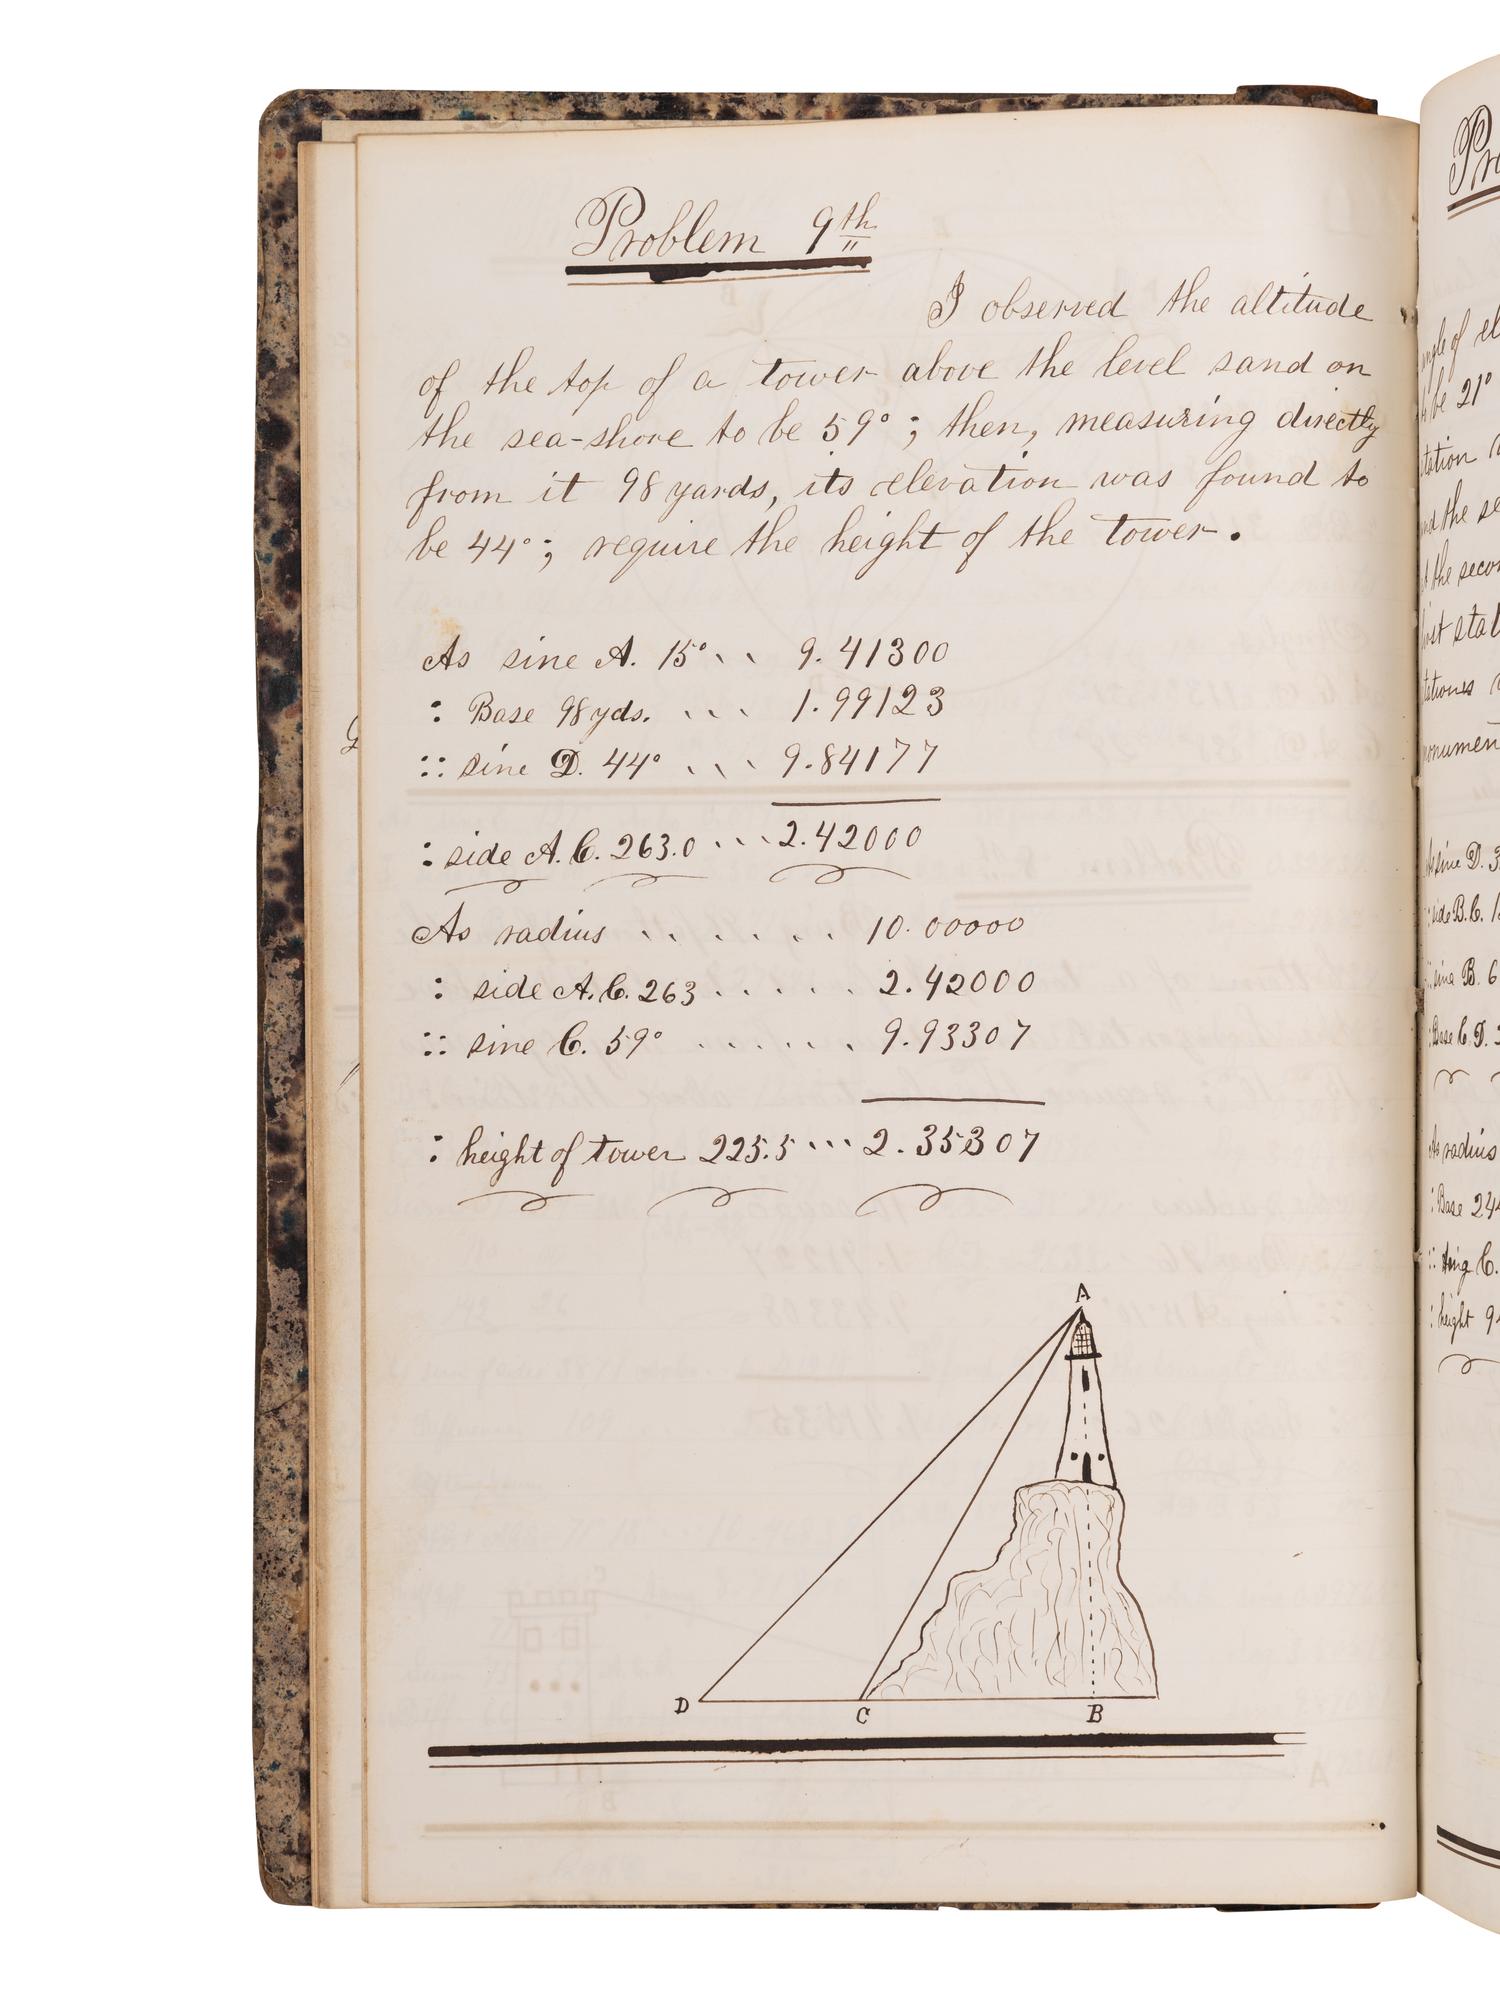 Problem 9th
I observed the altitude
of the top of a tower above the level sand on
the sea-shore to be 59°; then, measuring directly
from it 98 yards, its elevation was found to
be 44°; require the height of the tower.
As sine A. 15° . . 9.41300
: Base 98 yds. . . . 1.99123
:: sine D. 44° . . . 9.84177
: side A.C. 263.0 . . . 2.42000
As radius . . . . . . 10.00000
: side A.C. 263 . . . . . 2.42000
:: sine C. 59° . . . . . . 9.93307
: height of tower 225.5 . . . 2.35307
A
D C B
Pr
angle of el
be 21°
station
and the se
at the secon
first stat
stationes
monumen
As sine D. 3
: side B.C. 1
:: sine B. 6
: Base C.D. 3
As radius
: Base 244
:: tang C.
: height 9